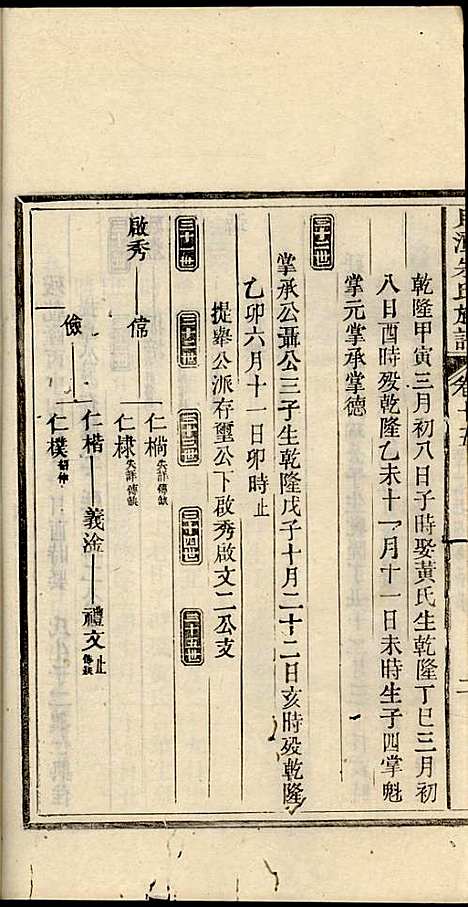 乾隆甲寅三月初八日子時娶黃氏生乾隆丁巳三月初
八日酉時殁乾隆乙未十一月十一日未時生子四掌魁
掌元掌承掌德
三十二世
掌承公灄公三子生乾隆戊子十月二十二日亥時殁乾隆
乙卯六月十一日卯時止
提舉公派存璽公下啟秀啟文二公支
三十一世 三十二世 三十三世 三十四世 三十五世
啟秀 偆 仁椾失詳傳缺
仁棣失詳傳缺
儉 仁楷 義淦 禮文傳缺 止
仁樸